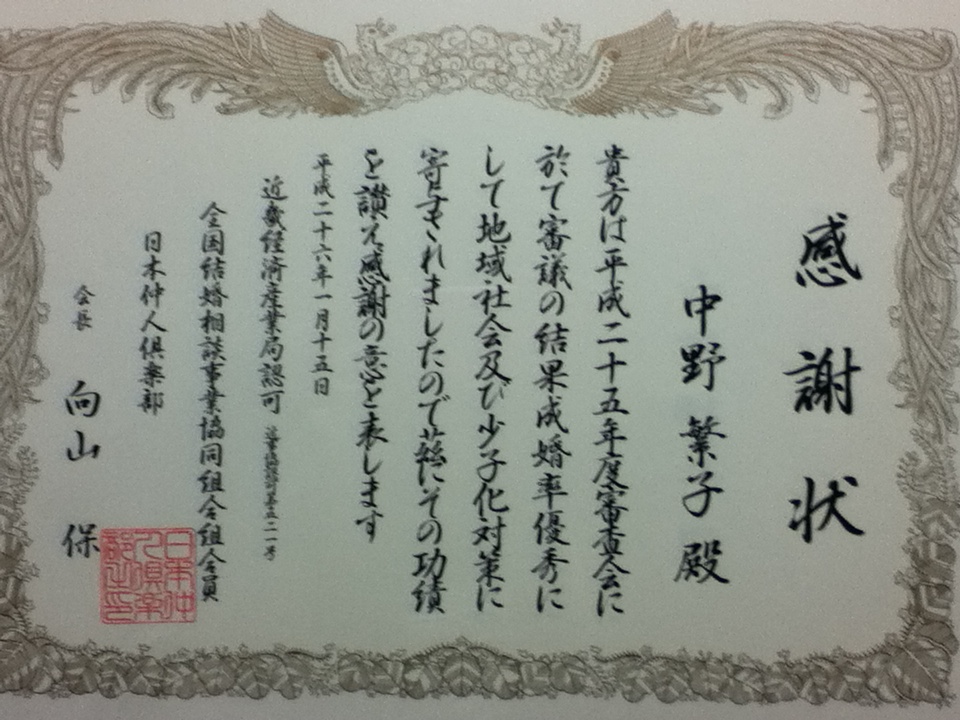 感謝状
中野繁子殿
貴方は平成二十五年度審査会に
於て審議の結果成婚率優秀に
して地域社会及び少子化対策に
寄与されましたので茲にその功績
を讃え感謝の意を表します
平成二十六年一月十五日
近畿経済産業局認可
全国結婚相談事業協同組合組合員
日本仲人倶楽部
会長 向山 保
日本仲
人倶楽
部之印